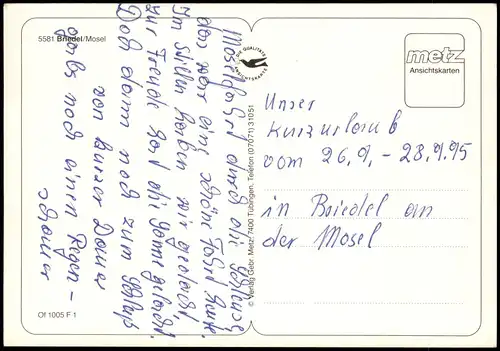 5581 Briedel/Mosel
Moselfahrt durch die Schleuse,
das war eine schöne Fahrt heute.
Im stillen haben wir gedacht,
zur Freude hat die Sonne gelacht.
Doch dann noch zum Schluß
von kurzer Dauer
gabs noch einen Regen-
schauer
Of 1005 F 1
DIE QUALITÄTS
ANSICHTSKARTE
© Verlag Gebr. Metz, 7400 Tübingen, Telefon (07071) 31051
metz
Ansichtskarten
Unser
Kurzurlaub
vom 26.9.-28.9.95
in Briedel an
der Mosel